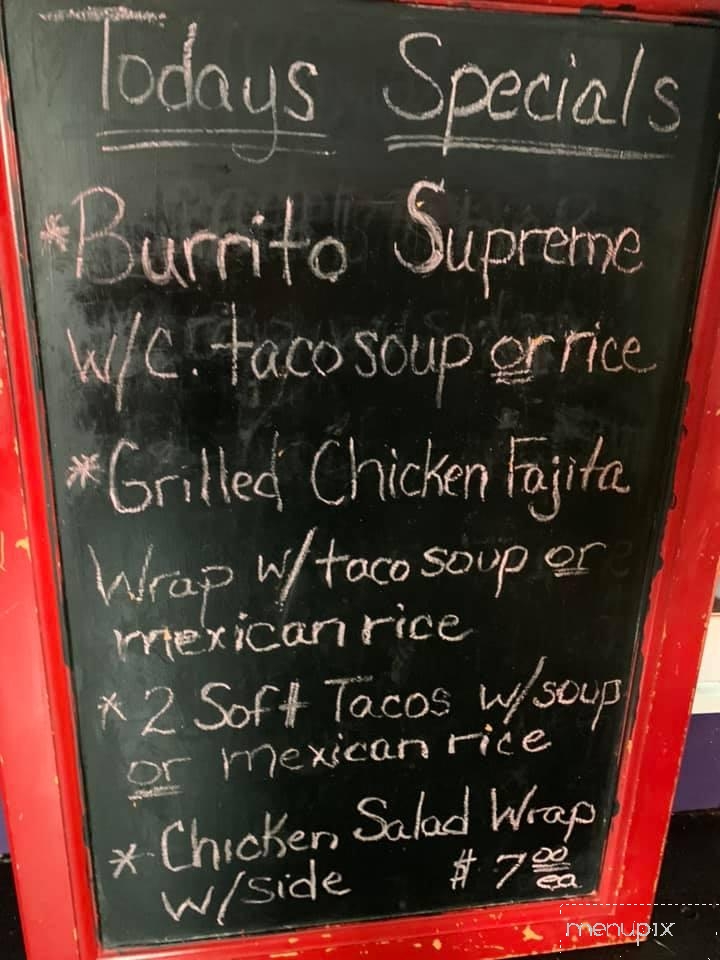 Todays Specials
*Burrito Supreme
W/C. taco soup or rice
*Grilled Chicken Fajita
Wrap w/taco soup or
mexican rice
* 2 Soft Tacos w/soup
or mexican rice
* Chicken Salad Wrap
w/side $ 7 00 ea
menupix